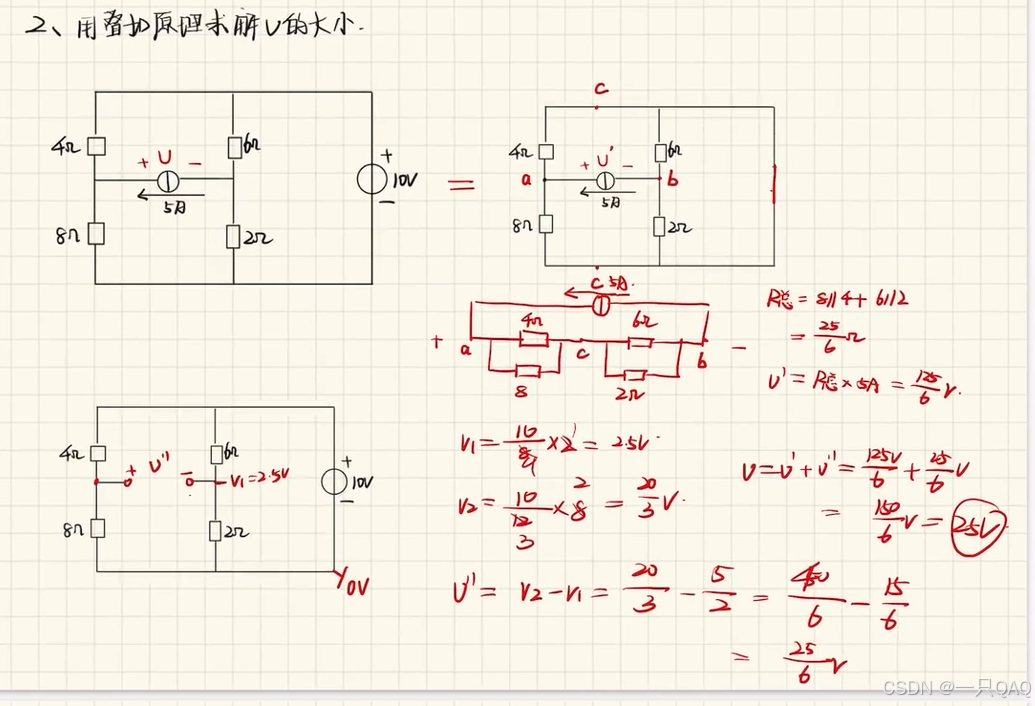 2、用叠加原理求解U的大小.
4Ω
+ U −
6Ω
5A
8Ω
2Ω
+
10V
−
=
c
4Ω
+ U' −
6Ω
a
b
5A
8Ω
2Ω
c 5A.
4Ω
6Ω
+ a
c
b −
8
2Ω
R总 = 8//4 + 6//2
= 25/6 Ω
U' = R总 × 5A = 125/6 V.
4Ω
+ U'' −
6Ω
V1=2.5V
8Ω
2Ω
+
10V
−
0V
V1 = 10/8 × 2 = 2.5V.
4
V2 = 10/12 × 8 = 20/3 V.
2
3
U = U' + U'' = 125V/6 + 25/6 V
= 150/6 V = 25V
U'' = V2 − V1 = 20/3 − 5/2 = 40/6 − 15/6
= 25/6 V
CSDN @一只QAQ